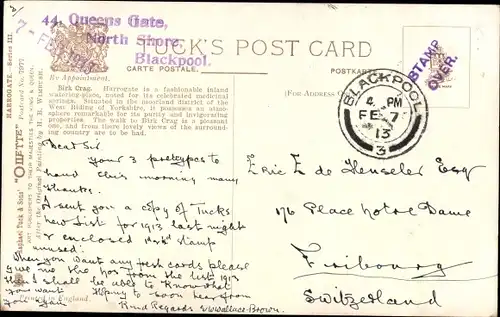 44, Queens Gate,
North Shore,
Blackpool.
FEB 1913
TUCK'S POST CARD
CARTE POSTALE.
POSTKARTE
By Appointment.
(FOR ADDRESS
STAMP
OVER.
BLACKPOOL
4 PM
FE 7
13
3
Birk Crag. Harrogate is a fashionable inland
watering-place, noted for its celebrated medicinal
springs. Situated in the moorland district of the
West Riding of Yorkshire, it possesses an atmo-
sphere remarkable for its purity and invigorating
properties. The walk to Birk Crag is a pleasant
one, and from there lovely views of the surround-
ing country are to be had.
HARROGATE. SERIES III.
Raphael Tuck & Sons' "OILETTE" Postcard No. 7977
ART PUBLISHERS TO THEIR MAJESTIES THE KING & QUEEN.
After the Original Painting by H. B. WIMBUSH.
Printed in England.
Dear Sir
Your 3 prettypcs to
hand this morning many
thanks.
I sent you a copy of Tucks
new List for 1913 last night
& enclosed stamp
unused.
When you want any fresh cards please
give me the Nos from the list 1913
then I shall be able to Know what
you want. Hoping to soon hear from
you again. Kind Regards W Wallace-Brown.
Eric E de Henseler Esq
176 Place Notre Dame
Fribourg
Switzerland